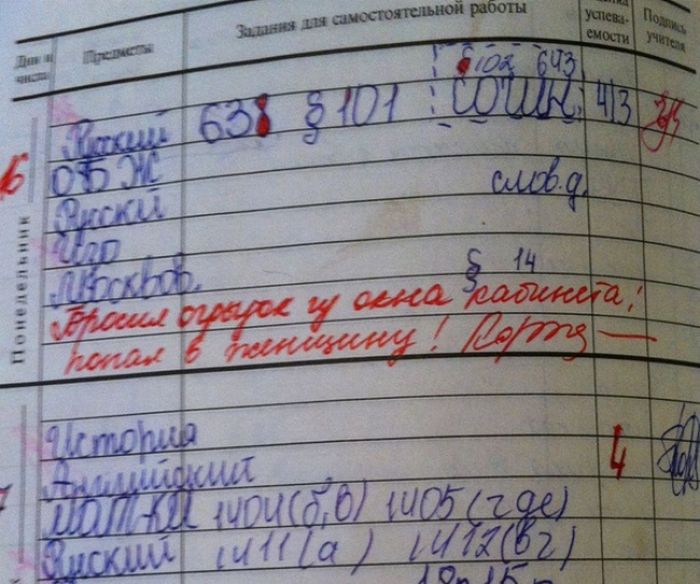 Дни и числа Предметы Задания для самостоятельной работы успева-емости Подпись учителя
§102 643
16 Понедельник Русский 638 §101 сочин. 4/3
ОБЖ
Русский слов.д.
Изо
Москвов. § 14
Бросил огрызок из окна кабинета!
попал в женщину!
История
Английский 4
МАТ-КА 1404(б,в) 1405(где)
Русский 1411(а) 1412(вг)